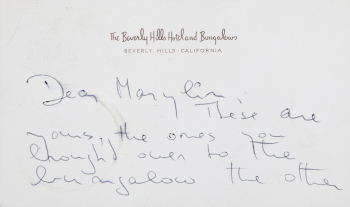 The Beverly Hills Hotel and Bungalows
BEVERLY HILLS · CALIFORNIA
Dear Marylin,
These are
yours, the ones you
brought over to the
bungalow the other